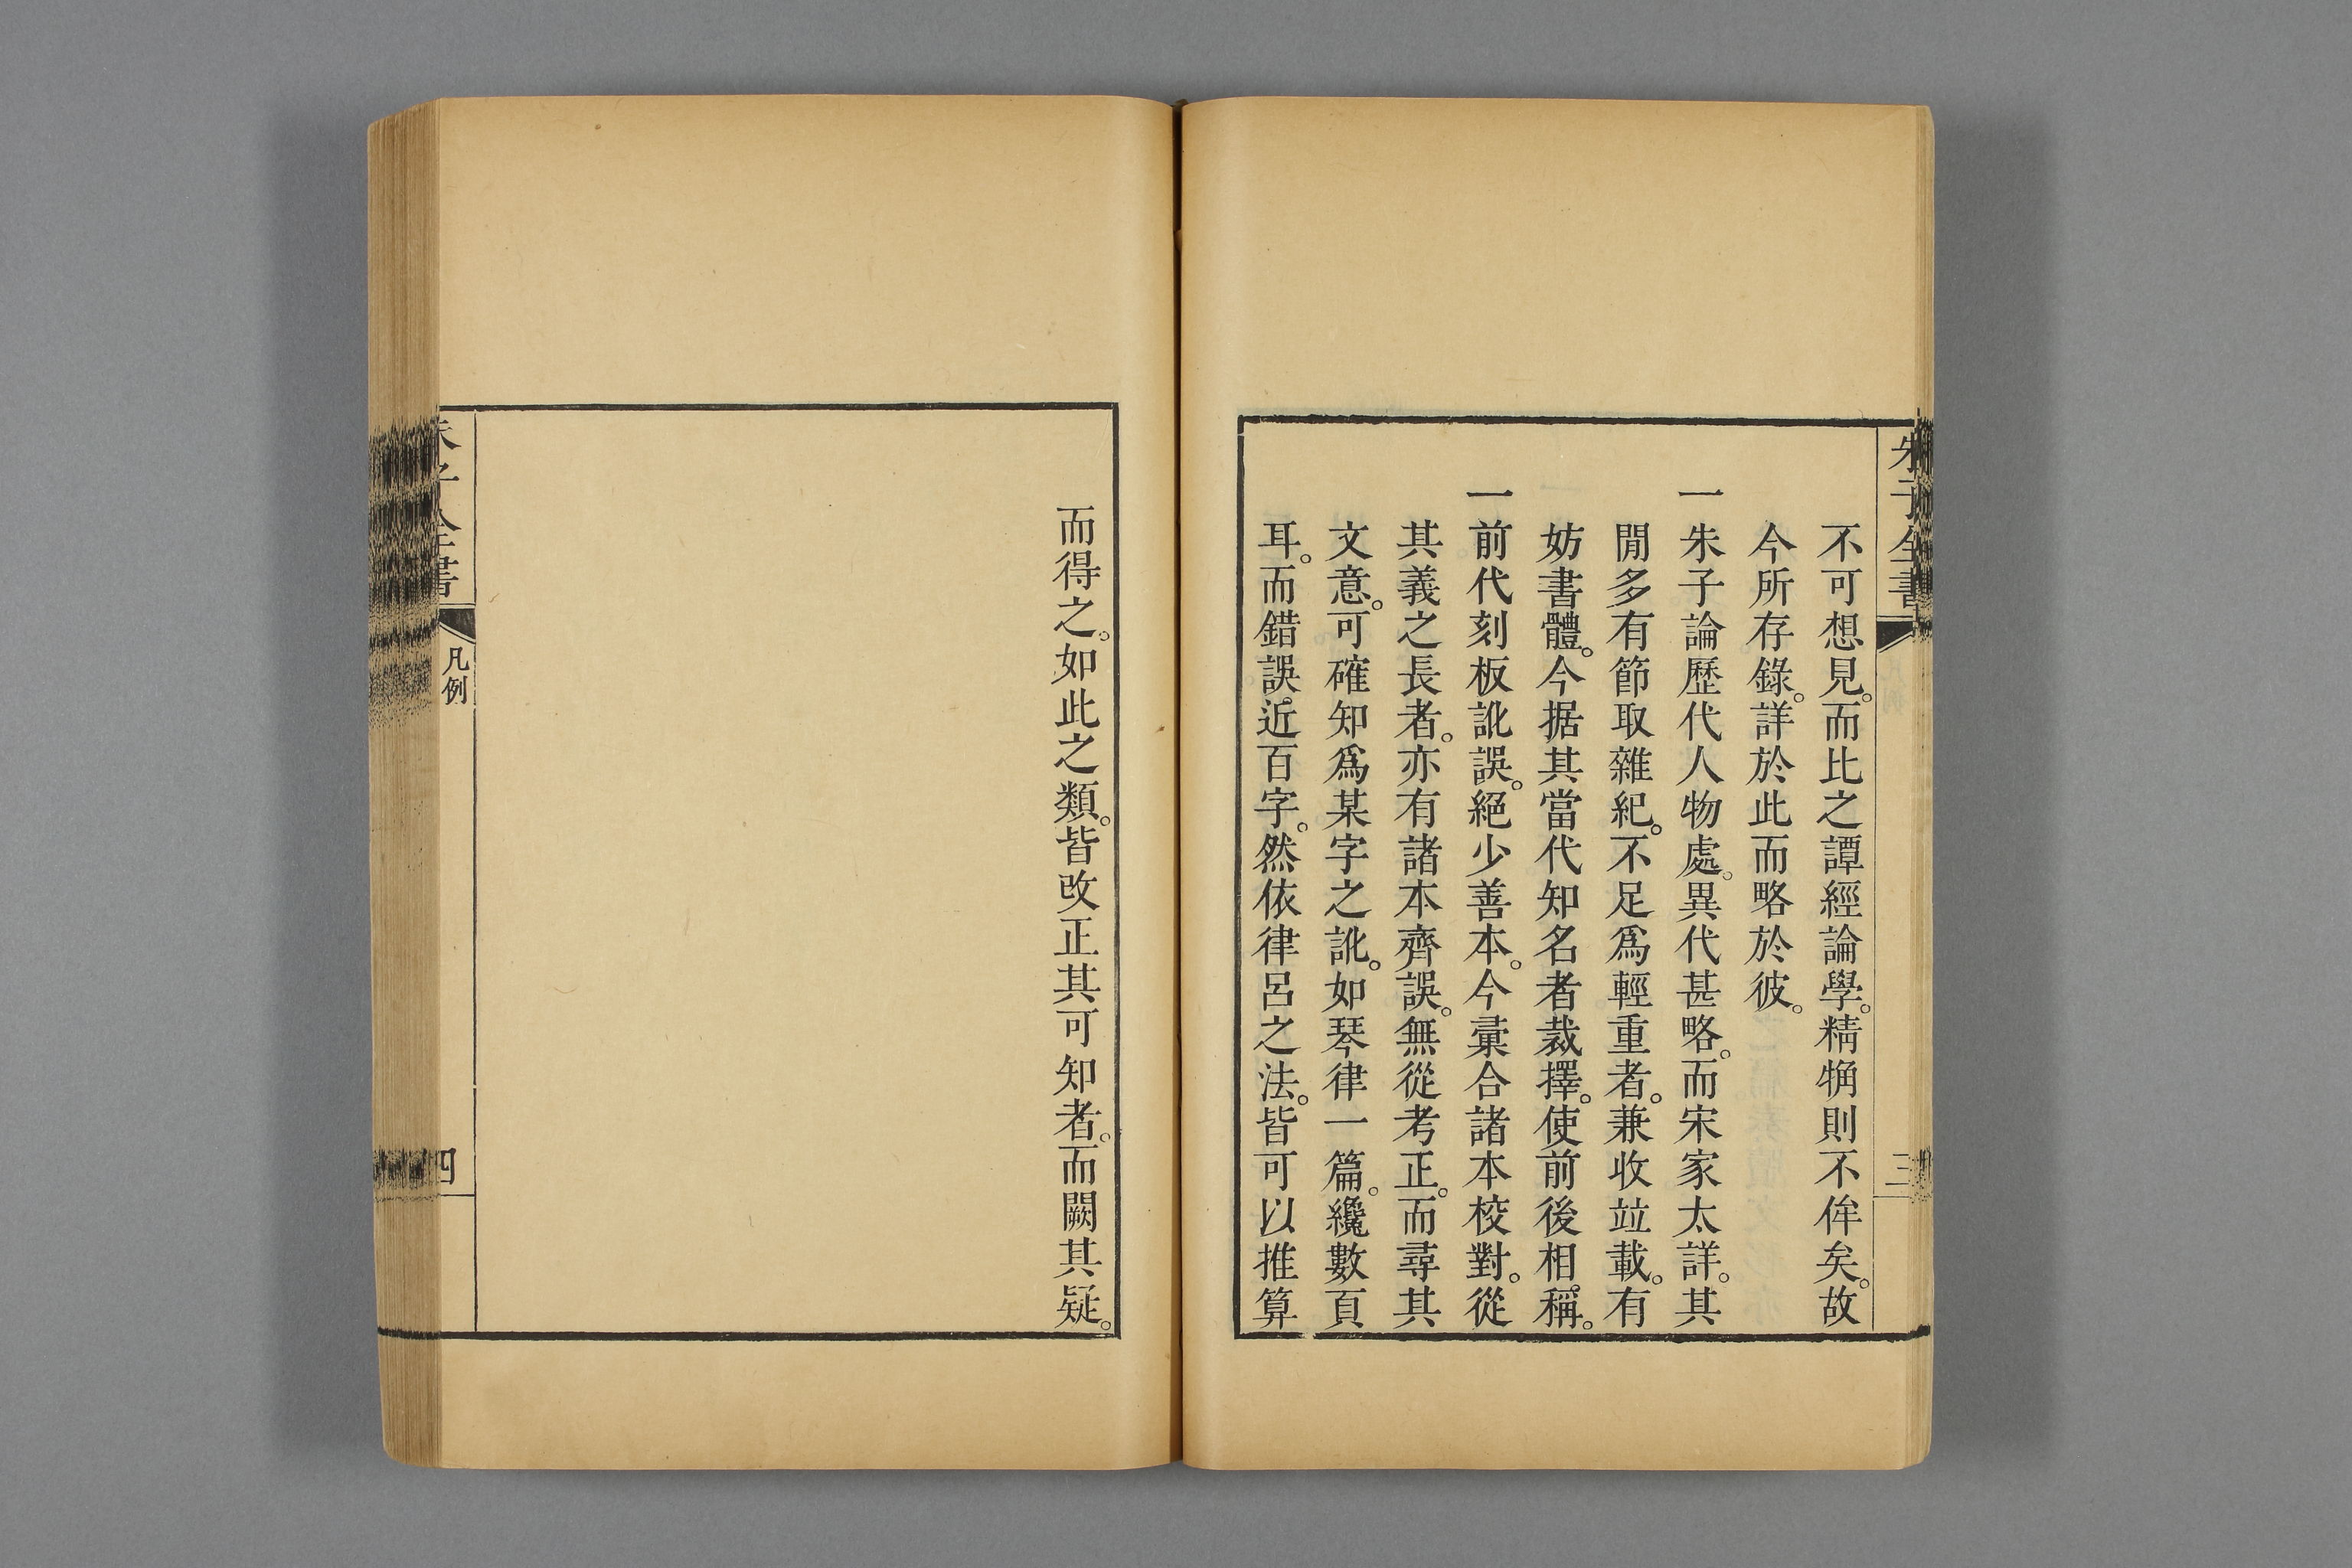 朱子全書
三
不可想見。而比之譚經論學。精觕則不侔矣。故
今所存錄。詳於此而略於彼。
一朱子論歷代人物處。異代甚略。而宋家太詳。其
閒多有節取雜紀。不足爲輕重者。兼收竝載。有
妨書體。今据其當代知名者裁擇。使前後相。稱。
一前代刻板訛誤。絕少善本。今彙合諸本校對。從
其義之長者。亦有諸本齊誤。無從考正。而尋其
文意。可確知爲某字之訛。如琴律一篇。纔數頁
耳。而錯誤。近百字。然依律呂之法。皆可以推算
而得之。如此之類。皆改正其可知者。而闕其疑。
朱子全書
凡例
四